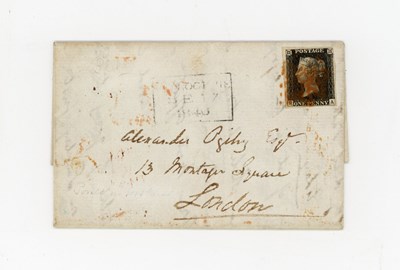 POSTAGE
ONE PENNY
1840
Alexander Ogilby Esqr.
13 Montagu Square
London